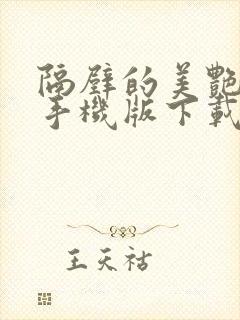 隔壁的美艷
手機版下載
王天祜